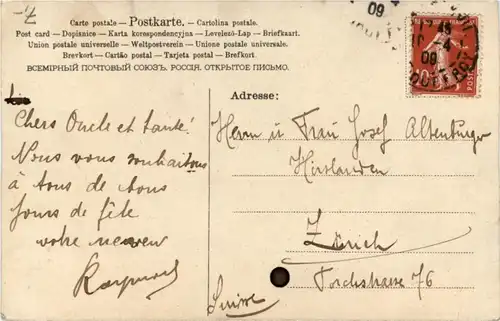 Carte postale – Postkarte. – Cartolina postale.
Post card – Dopisnice – Karta korespondencyjna – Levelező-Lap – Briefkaart.
Union postale universelle – Weltpostverein – Unione postale universale.
Brevkort – Cartão postal – Tarjeta postal – Brefkort.
ВСЕМІРНЫЙ ПОЧТОВЫЙ СОЮЗЪ. РОССІЯ. ОТКРЫТОЕ ПИСЬМО.
Chers Oncle et tante!
Nous vous souhaitons
à tous de bons
jours de fête
votre neveu
Raymond
Adresse:
Herrn u Frau Josef Altenburger
Hirslanden
Zürich
Forchstrasse 76
Suisse
09
09